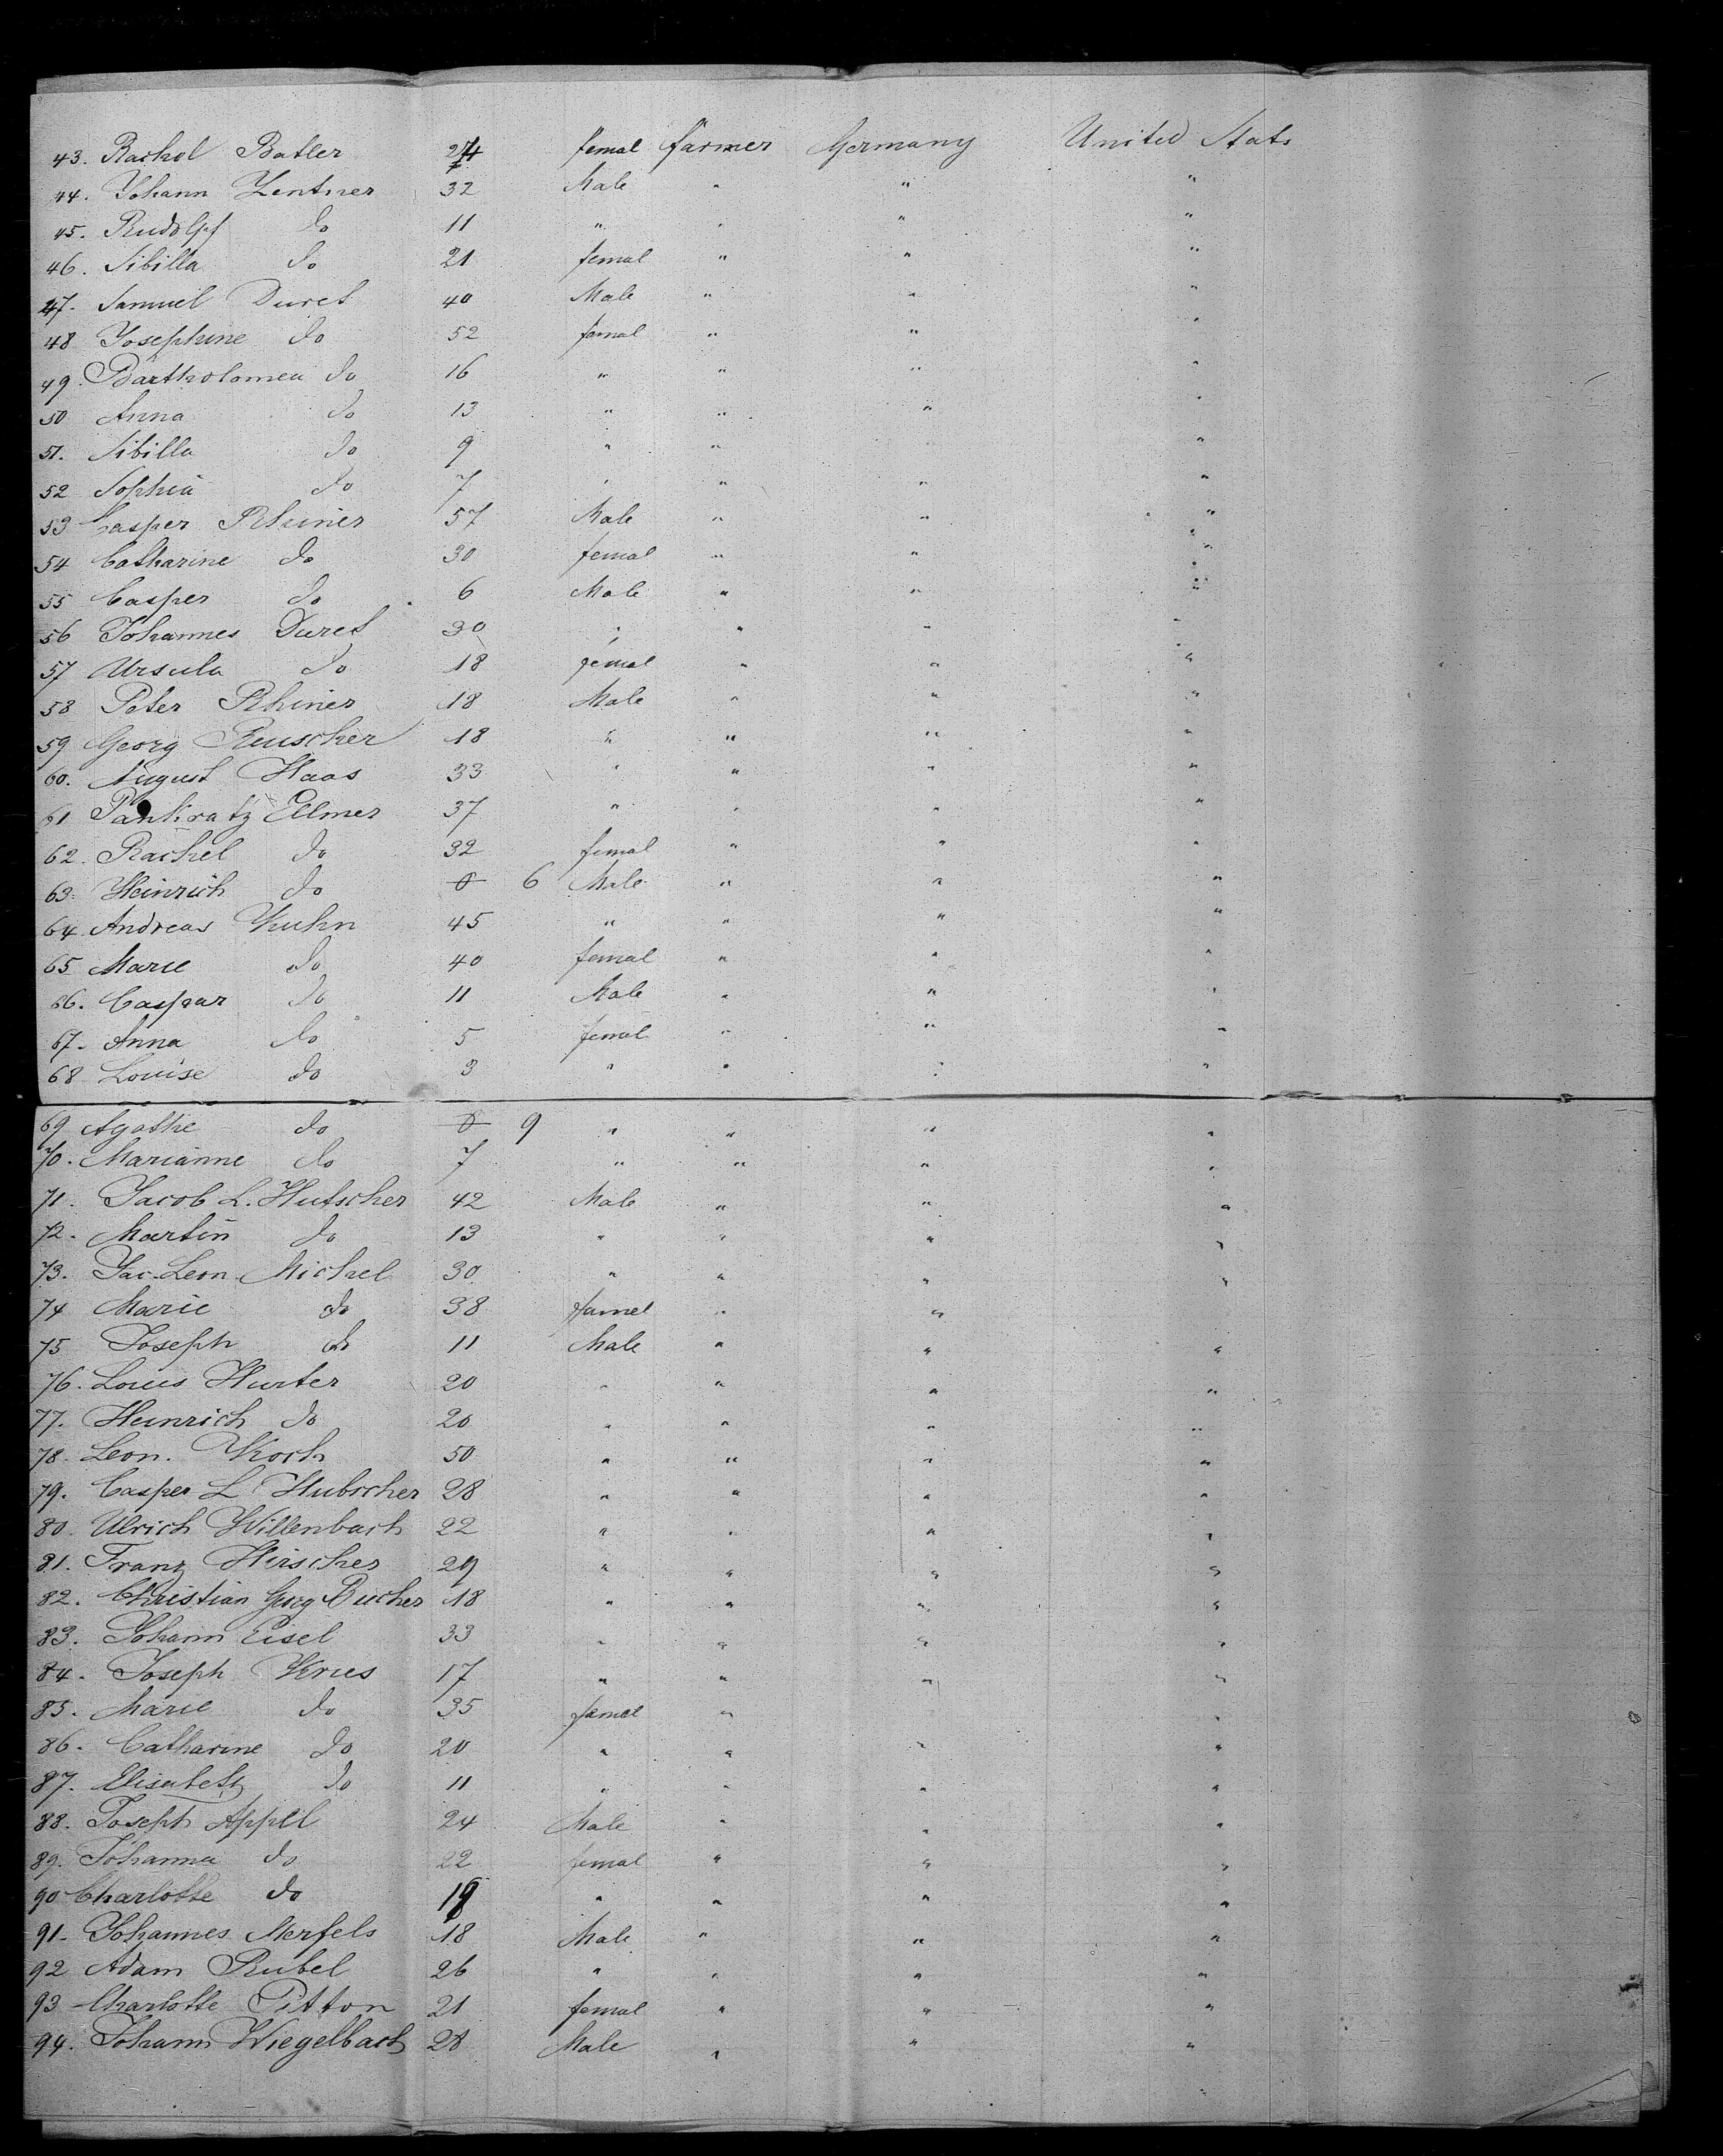 43. Rachol Batler 24 femal farmer Germany United Stats
44. Johann Zentner 32 Male " " "
45. Rudolpf do 11 " " " "
46. Sibilla do 21 femal " " "
47. Samuel Durst 40 Male " " "
48 Josephine do 52 femal " " "
49. Bartholomea do 16 " " " "
50 Anna do 13 " " " "
51. Sibilla do 9 " " "
52 Sophia do 7 " " " "
53 Casper Rhiner 57 Male " " "
54 Catharine do 30 femal " " "
55 Casper do 6 Male " " "
56 Johannes Durst 30 " " " "
57 Ursula do 18 femal " " "
58 Peter Rhiner 18 Male " " "
59 Georg Reuscher 18 " " " "
60. August Haas 33 " " " "
61 Pankratz Ellmer 37 " " " "
62. Rachel do 32 femal " " "
63. Heinrich do 6 Male " " "
64. Andreas Kuhn 45 " " " "
65 Marie do 40 femal " " "
66. Caspar do 11 Male " " "
67. Anna do 5 femal " " "
68 Louise do 3 " " " "
69 Agathe do 9 " " " "
70. Marianne do 7 " " " "
71. Jacob L. Hutscher 42 Male " " "
72. Martin do 13 " " " "
73. Jac. Leon. Michel 30 " " " "
74 Marie do 38 famel " " "
75 Joseph do 11 Male " " "
76. Louis Hurter 20 " " " "
77. Heinrich do 20 " " " "
78. Leon. Koch 50 " " " "
79. Casper L Hubscher 28 " " " "
80. Ulrich Willenbach 22 " " " "
81. Franz Hirscher 29 " " " "
82. Christian Georg Bucher 18 " " " "
83. Johann Eisel 33 " " " "
84. Joseph Kries 17 " " " "
85. Marie do 35 famel " "
86. Catharine do 20 " " " "
87. Elisabeth do 11 " " " "
88. Joseph Appel 24 Male " " "
89. Johanna do 22 femal " " "
90 Charlotte do " " " "
91. Johannes Merfels 18 Male " " "
92 Adam Rubel 26 " " " "
93 Charlotte Pitton 21 femal " " "
94. Johann Wiegelbach 28 Male " " "